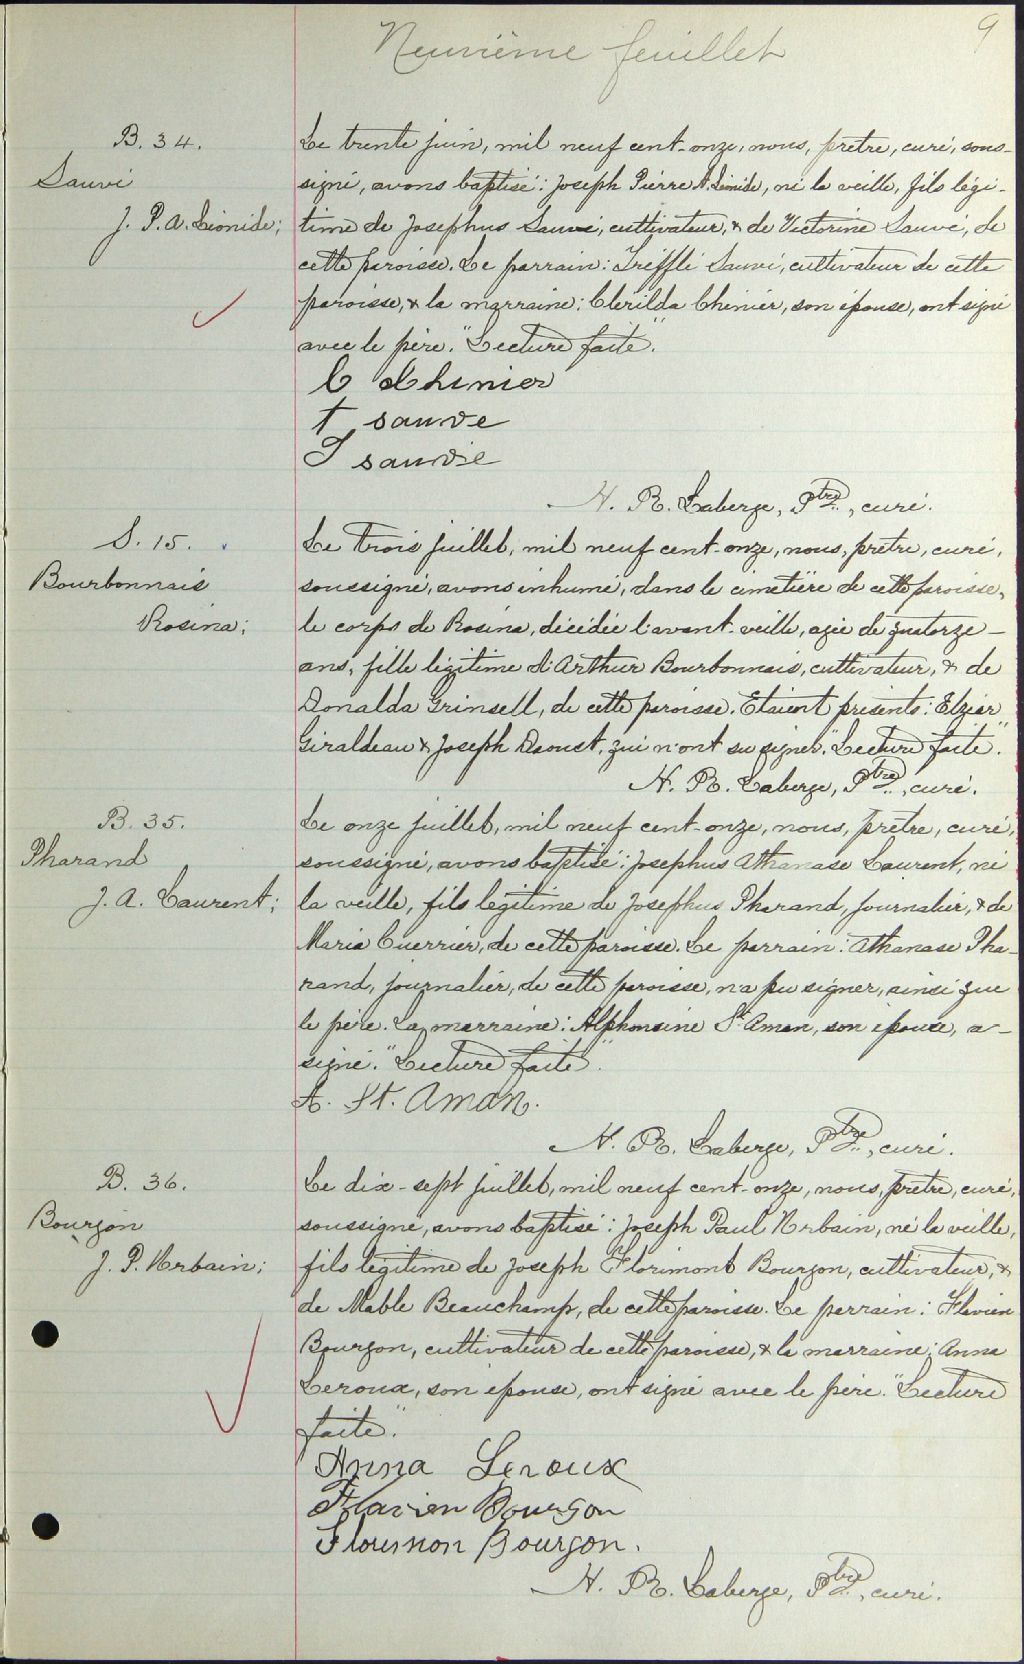 Neuvième feuillet
9
B. 34.
Sauvé
J. P. A. Léonide;
Le trente juin, mil neuf cent-onze, nous, prêtre, curé, sous-
signé, avons baptisé: Joseph Pierre A. Léonide, né la veille, fils légi-
time de Josephus Sauvé, cultivateur, & de Victorine Sauvé, de
cette paroisse. Le parrain: Trefflé Sauvé, cultivateur de cette
paroisse, & la marraine: Clerilda Chénier, son épouse, ont signé
avec le père. "Lecture faite".
C Chenier
T sauve
J sauvé
H. R. Laberge, Ptre, curé.
S. 15.
Bourbonnais
Rosina;
Le trois juillet, mil neuf cent-onze, nous, prêtre, curé,
soussigné, avons inhumé, dans le cimetière de cette paroisse,
le corps de Rosina, décédée l'avant-veille, agée de quatorze-
ans, fille légitime d'Arthur Bourbonnais, cultivateur, & de
Donalda Grinsell, de cette paroisse. Etaient présents: Elzéar
Giraldeau & Joseph Daoust, qui n'ont su signer. "Lecture faite."
H. R. Laberge, Ptre, curé.
B. 35.
Pharand
J. A. Laurent;
Le onze juillet, mil neuf cent-onze, nous, prêtre, curé,
soussigné, avons baptisé: Josephus Athanase Laurent, né
la veille, fils légitime de Josephus Pharand, journalier, & de
Maria Cuerrier, de cette paroisse. Le parrain: Athanase Pha-
rand, journalier, de cette paroisse, n'a pu signer, ainsi que
le père. La marraine: Alphonsine St Aman, son épouse, a-
signé. "Lecture faite".
A. St. Aman.
H. R. Laberge, Ptre, curé.
B. 36.
Bourgon
J. P. Urbain;
Le dix-sept juillet, mil neuf cent-onze, nous, prêtre, curé,
soussigné, avons baptisé: Joseph Paul Urbain, né la veille,
fils légitime de Joseph Florimont Bourgon, cultivateur, &
de Mable Beauchamp, de cette paroisse. Le parrain: Flavien
Bourgon, cultivateur de cette paroisse, & la marraine: Anna
Leroux, son épouse, ont signé avec le père. "Lecture
faite."
Anna Leroux
Flavien Bourgon
Florimon Bourgon.
H. R. Laberge, Ptre, curé.